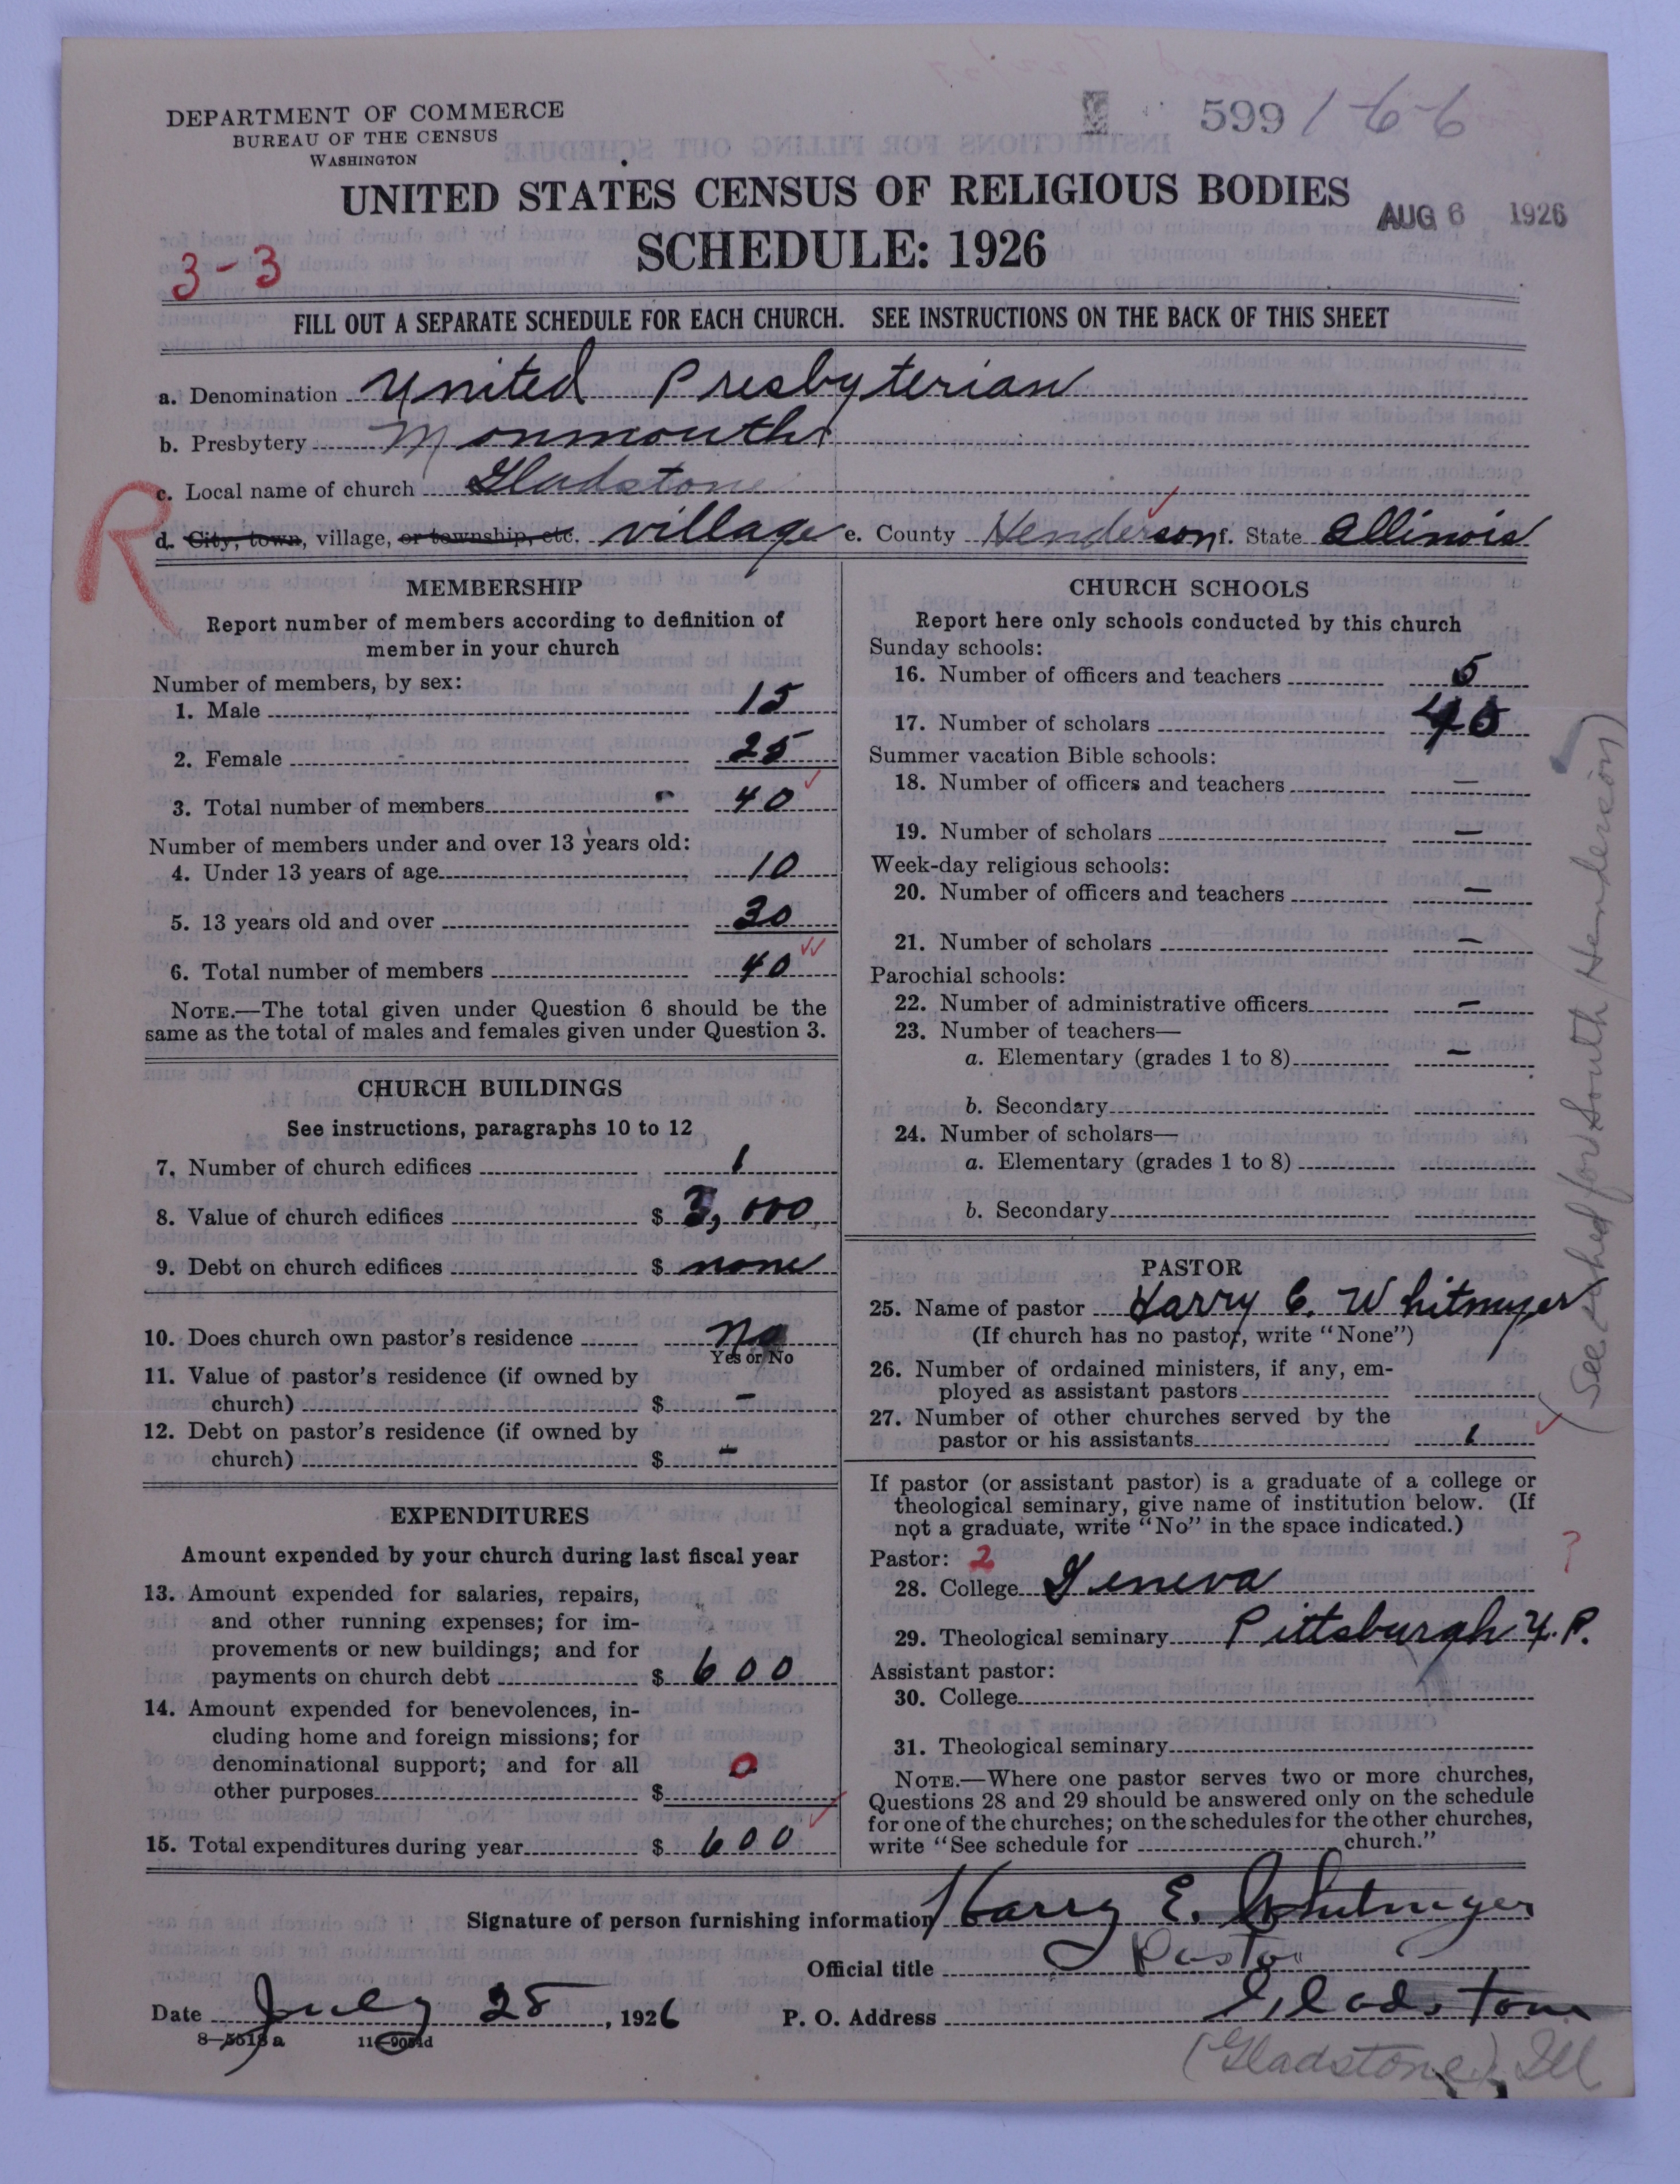 DEPARTMENT OF COMMERCE
BUREAU OF THE CENSUS
WASHINGTON
599 166
UNITED STATES CENSUS OF RELIGIOUS BODIES
AUG 6 1926
SCHEDULE: 1926
3-3
FILL OUT A SEPARATE SCHEDULE FOR EACH CHURCH. SEE INSTRUCTIONS ON THE BACK OF THIS SHEET
a. Denomination United Presbyterian
b. Presbytery Monmouth
c. Local name of church Gladstone
R
d. City, town, village, or township, etc. village e. County Henderson f. State Illinois
MEMBERSHIP
Report number of members according to definition of
member in your church
Number of members, by sex:
1. Male 15
2. Female 25
3. Total number of members 40
Number of members under and over 13 years old:
4. Under 13 years of age 10
5. 13 years old and over 30
6. Total number of members 40
NOTE.—The total given under Question 6 should be the
same as the total of males and females given under Question 3.
CHURCH BUILDINGS
See instructions, paragraphs 10 to 12
7. Number of church edifices 1
8. Value of church edifices $ 3,000
9. Debt on church edifices $ none
10. Does church own pastor's residence No
Yes or No
11. Value of pastor's residence (if owned by
church) $ -
12. Debt on pastor's residence (if owned by
church) $ -
EXPENDITURES
Amount expended by your church during last fiscal year
13. Amount expended for salaries, repairs,
and other running expenses; for im-
provements or new buildings; and for
payments on church debt $ 600
14. Amount expended for benevolences, in-
cluding home and foreign missions; for
denominational support; and for all
other purposes $ 0
15. Total expenditures during year $ 600
CHURCH SCHOOLS
Report here only schools conducted by this church
Sunday schools:
16. Number of officers and teachers 5
17. Number of scholars 45
Summer vacation Bible schools:
18. Number of officers and teachers —
19. Number of scholars —
Week-day religious schools:
20. Number of officers and teachers —
21. Number of scholars —
Parochial schools:
22. Number of administrative officers —
23. Number of teachers—
a. Elementary (grades 1 to 8) —
b. Secondary
24. Number of scholars—
a. Elementary (grades 1 to 8)
b. Secondary
PASTOR
25. Name of pastor Harry E. Whitmyer
(If church has no pastor, write "None")
26. Number of ordained ministers, if any, em-
ployed as assistant pastors
27. Number of other churches served by the
pastor or his assistants 1
If pastor (or assistant pastor) is a graduate of a college or
theological seminary, give name of institution below. (If
not a graduate, write "No" in the space indicated.)
Pastor: 2
?
28. College Geneva
29. Theological seminary Pittsburgh U.P.
Assistant pastor:
30. College
31. Theological seminary
NOTE.—Where one pastor serves two or more churches,
Questions 28 and 29 should be answered only on the schedule
for one of the churches; on the schedules for the other churches,
write "See schedule for church."
(See sched for South Henderson)
Signature of person furnishing information Harry E. Whitmyer
Official title Pastor
Date July 28, 1926 P. O. Address Gladstone
8—5518a
(Gladstone) Ill